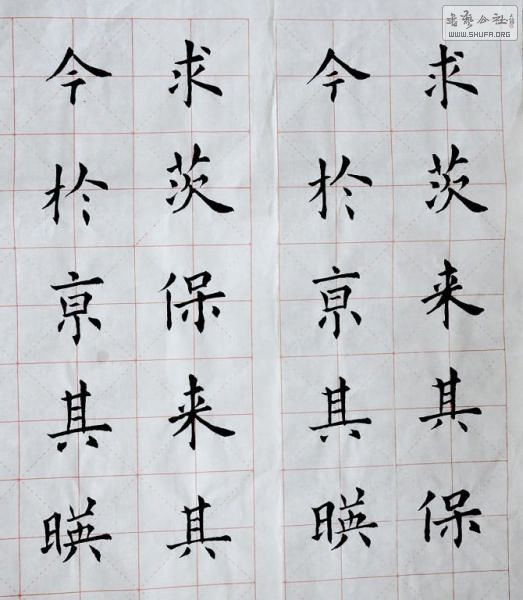 求茨来其保
今於亰其暎
求茨保来其
今於亰其暎
書藝公社
WWW.SHUFA.ORG